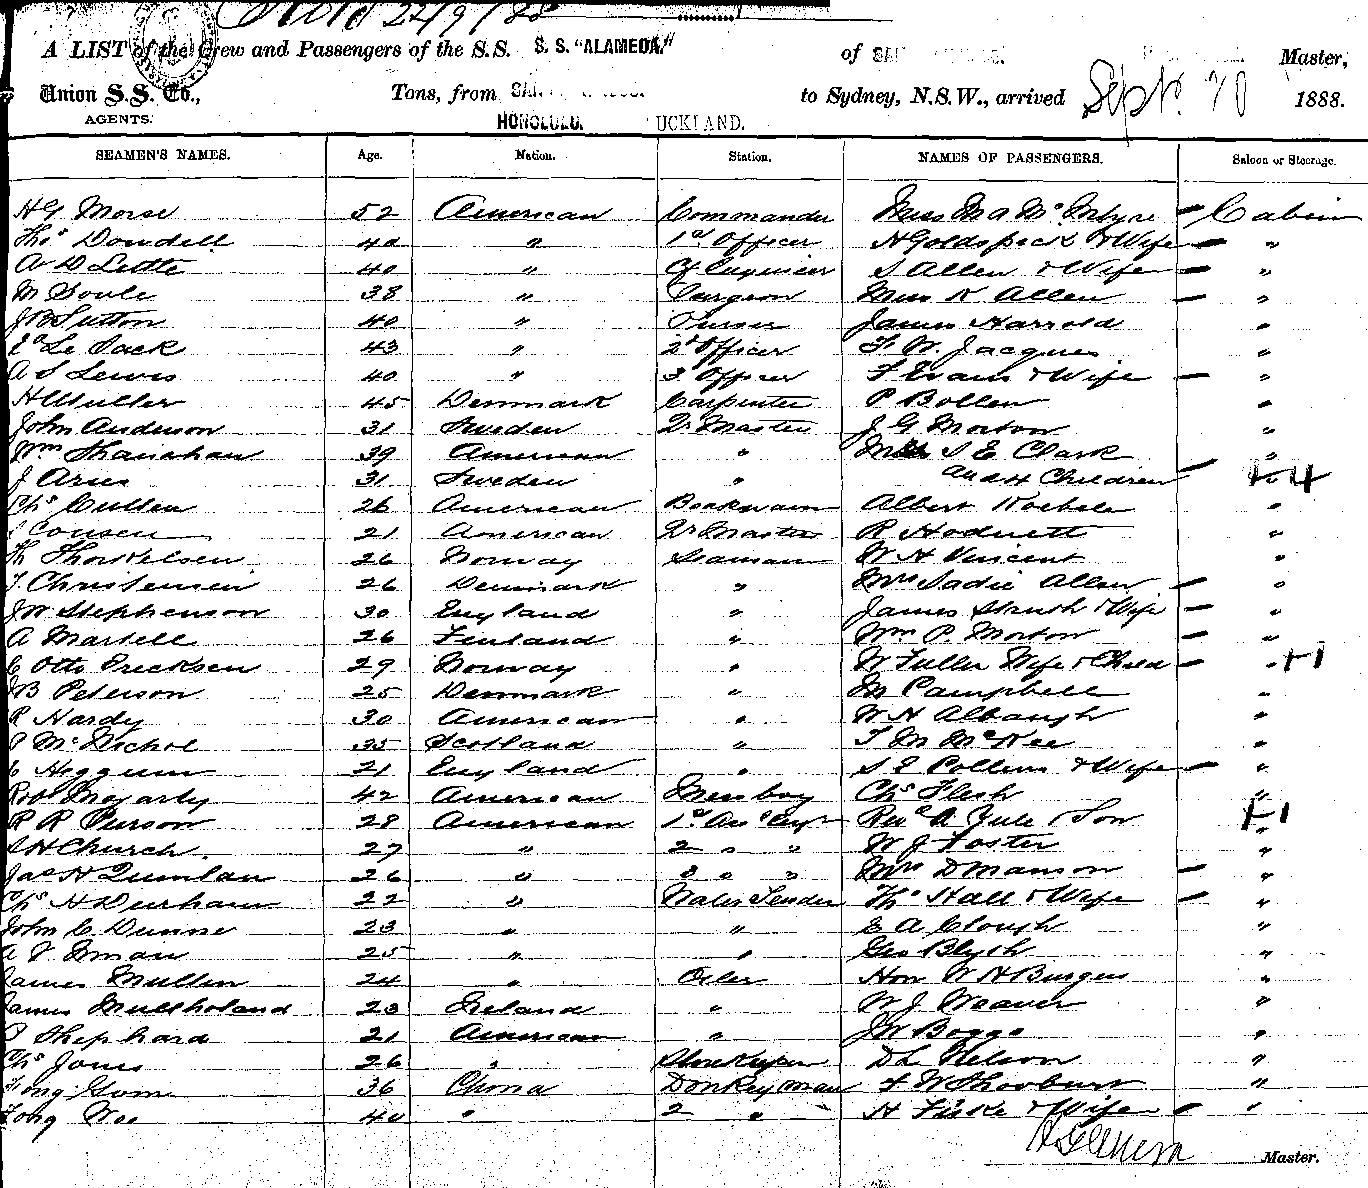 22/9/88
A LIST of the Crew and Passengers of the S.S. S. S. "ALAMEDA," of SAN Master,
Union S.S. Co., Tons, from SAN to Sydney, N.S.W., arrived Sept. 20 1888.
AGENTS. HONOLULU. UCKLAND.
SEAMEN'S NAMES. Age. Nation. Station. NAMES OF PASSENGERS. Saloon or Steerage.
H G Morse 52 American Commander Miss M A McIntyre – Cabin
Thos Dowdell 42 " 1st Officer H Goldspick & Wife – "
A D Little 40 " Cf Engineer S Allen & Wife – "
M Soule 38 " Surgeon Miss K Allen – "
J B Sutton 40 " Purser James Harrold "
Le Sack 43 " 2d Officer F. W. Jacques "
A S Lewis 40 " 3 Officer F Evans & Wife – "
H Muller 45 Denmark Carpenter P Bollen "
John Anderson 31 Sweden Qr Master J G Morton "
Wm Shanahan 39 American " S E Clark "
J Aries 31 Sweden " and 4 Children – +4
Chs Cullen 26 American Albert Koebele "
Cousen 21 American Qr Master R Hodnett "
Th Thorkelsen 26 Norway Seaman W H Vincent "
T. Christensen 26 Denmark " Mrs Sadie Allen – "
J W Stephenson 30 England " James & Wife – "
A Martell 26 Finland " Wm P. Morton – "
C Otto Ericksen 29 Norway " W Fuller Wife & Child – " +1
J B Peterson 25 Denmark " M Campbell "
R Hardy 30 American " W H Albaugh "
P McNichol 35 Scotland " T M McKee "
C Heggum 21 England " S E Collins & Wife – "
Robt Mogarty 42 American Messboy Chs Flesh "
R R Purson 28 American 1st Ass Engr Revd A Yule & Son +1 "
S H Church. 27 " 2 " " W J Foster "
Jas H Quinlan 26 " 3 " " Mrs D Manson – "
Chs H Durham 22 " Water Tender Thos Hall & Wife – "
John C Dunne 23 " " E A Clough "
A V 25 " " Geo Blyth "
James Mullen 24 " Oiler Hon W H Burges "
James Mulholland 23 Ireland " W J Weaver "
P Shephard 21 American " J W Boggs "
Chs Jones 26 " Storekeeper D L Nelson "
36 China Donkeyman "
Tong Woo 40 " 2 " H Fiske & Wife – "
Master.